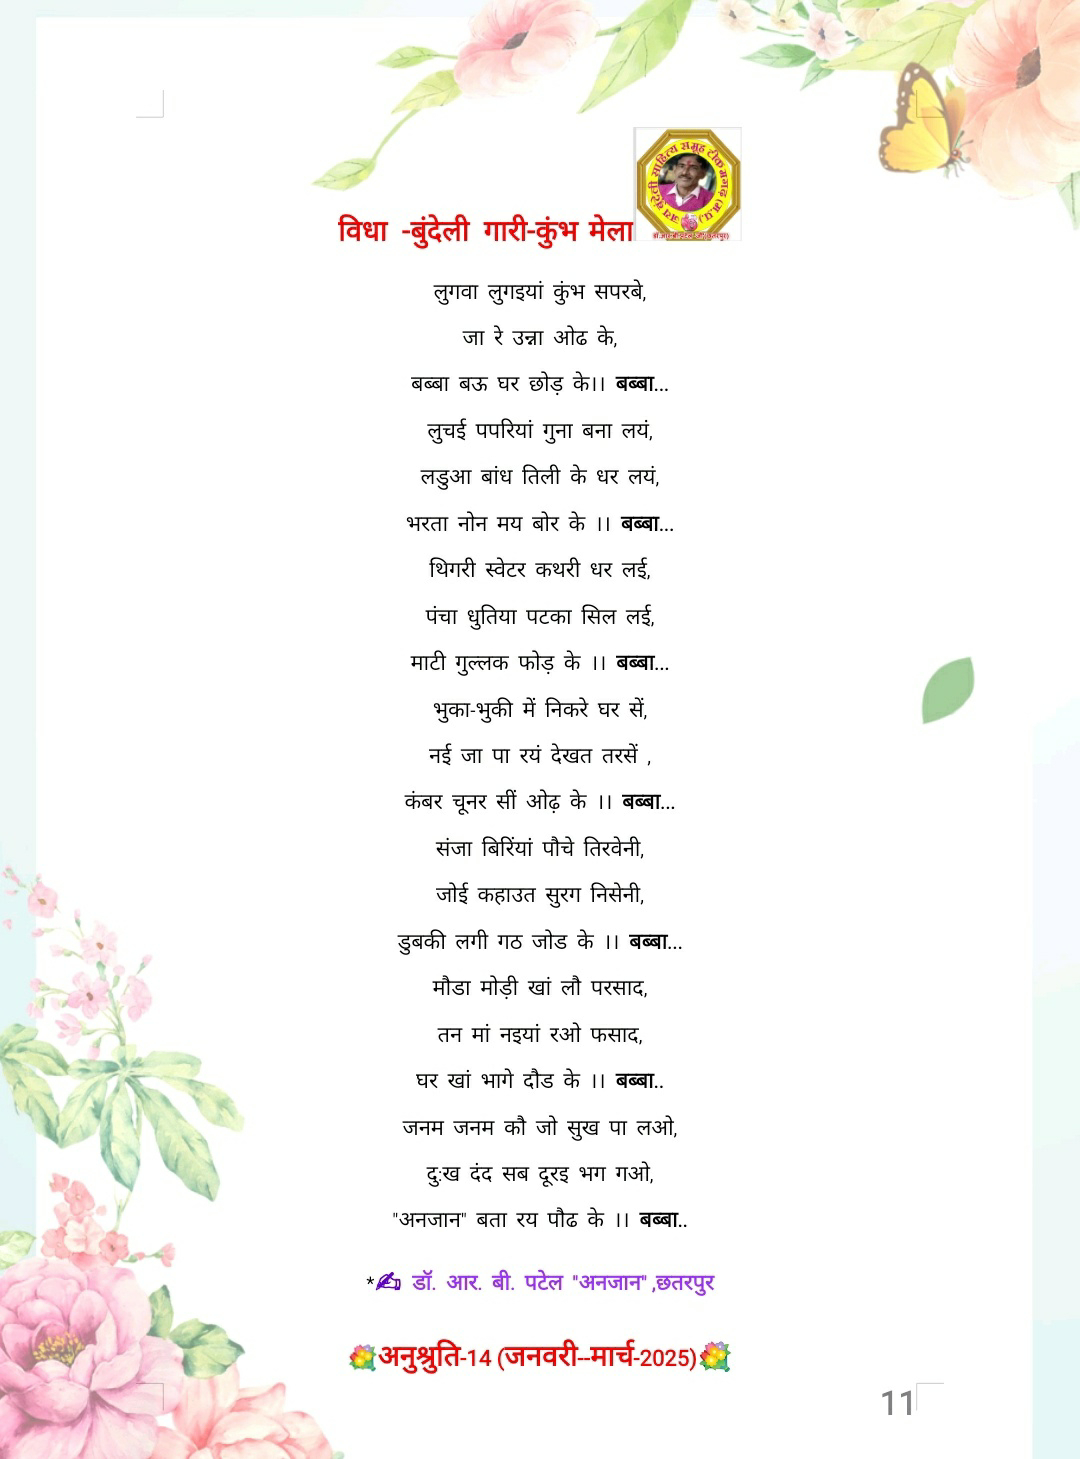 जय बुंदेली साहित्य समूह टीकमगढ़ (म.प्र.)
विधा -बुंदेली गारी-कुंभ मेला
लुगवा लुगइयां कुंभ सपरबे,
जा रे उन्ना ओढ के,
बब्बा बऊ घर छोड़ के।। बब्बा...
लुचई पपरियां गुना बना लयं,
लडुआ बांध तिली के धर लयं,
भरता नोन मय बोर के ।। बब्बा...
थिगरी स्वेटर कथरी धर लई,
पंचा धुतिया पटका सिल लई,
माटी गुल्लक फोड़ के ।। बब्बा...
भुका-भुकी में निकरे घर सें,
नई जा पा रयं देखत तरसें ,
कंबर चूनर सीं ओढ़ के ।। बब्बा...
संजा बिरिंयां पौचे तिरवेनी,
जोई कहाउत सुरग निसेनी,
डुबकी लगी गठ जोड के ।। बब्बा...
मौडा मोड़ी खां लौ परसाद,
तन मां नइयां रओ फसाद,
घर खां भागे दौड के ।। बब्बा..
जनम जनम कौ जो सुख पा लओ,
दु:ख दंद सब दूरइ भग गओ,
"अनजान" बता रय पौढ के ।। बब्बा..
*✍ डॉ. आर. बी. पटेल "अनजान" ,छतरपुर
💐अनुश्रुति-14 (जनवरी--मार्च-2025)💐
11